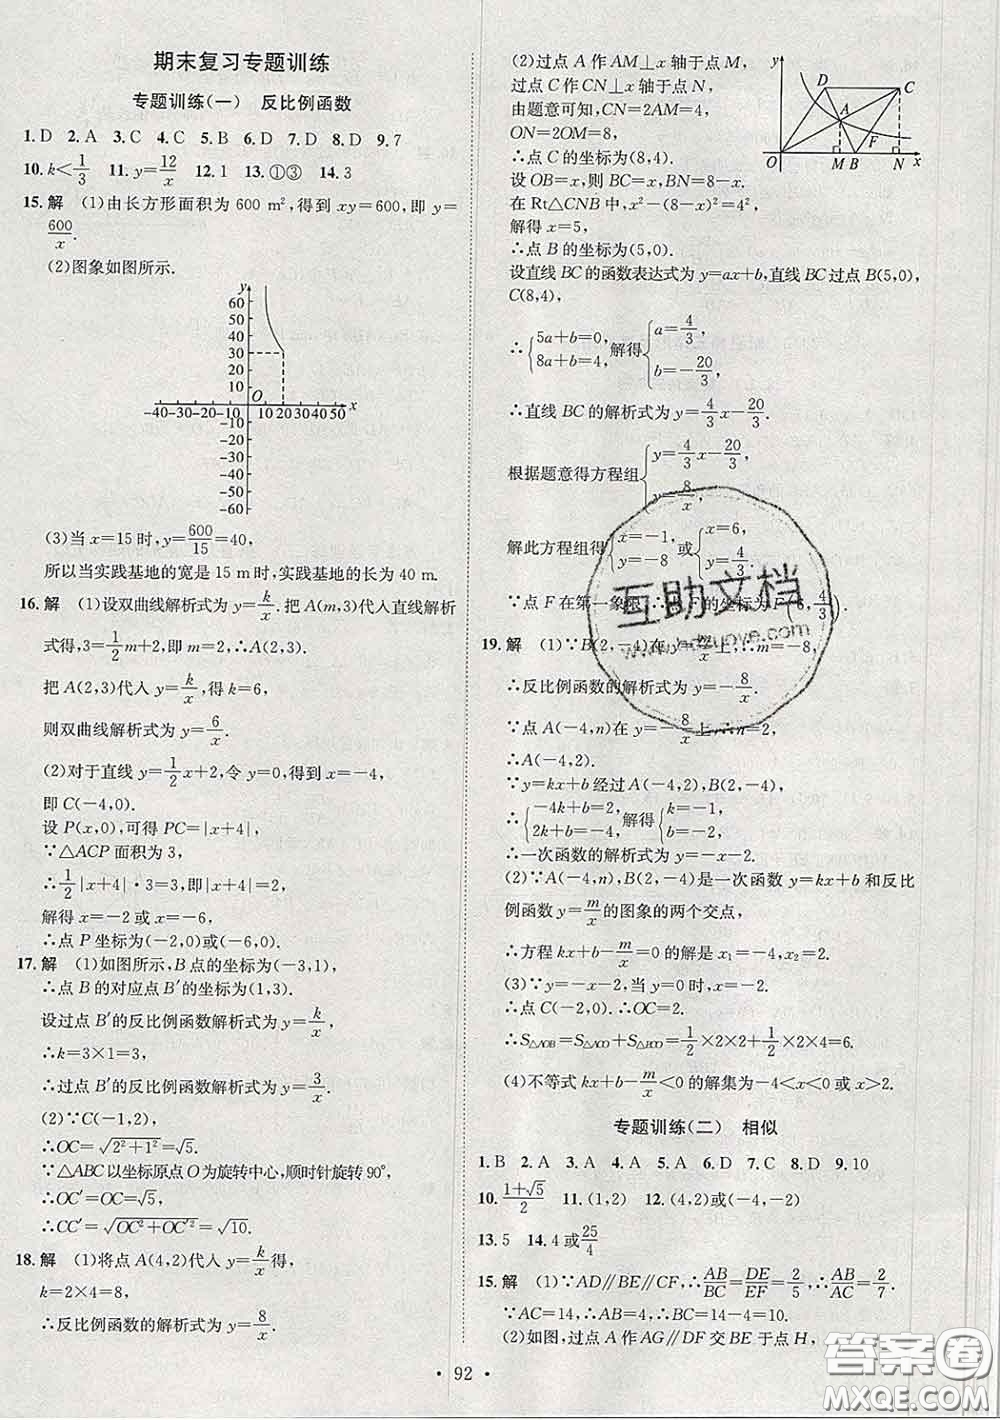 期末复习专题训练
专题训练(一) 反比例函数
1. D 2. A 3. C 4. C 5. B 6. D 7. D 8. D 9. 7
10. k<1/3 11. y=12/x 12. 1 13. ①③ 14. 3
15. 解 (1)由长方形面积为 600 m²,得到 xy=600,即 y=
600/x.
(2)图象如图所示.
y
60
50
40
30
20
10
O
-40-30-20-10 10 20 30 40 50 x
-10
-20
-30
-40
-50
-60
(3)当 x=15 时,y=600/15=40,
所以当实践基地的宽是 15 m时,实践基地的长为 40 m.
16. 解 (1)设双曲线解析式为 y=k/x.把 A(m,3)代入直线解析
式得,3=1/2m+2,即 m=2,∴A(2,3).
把 A(2,3)代入 y=k/x,得 k=6,
则双曲线解析式为 y=6/x.
(2)对于直线 y=1/2x+2,令 y=0,得到 x=-4,
即 C(-4,0).
设 P(x,0),可得 PC=|x+4|,
∵△ACP 面积为 3,
∴1/2|x+4|·3=3,即|x+4|=2,
解得 x=-2 或 x=-6,
∴点 P 坐标为(-2,0)或(-6,0).
17. 解 (1)如图所示,B点的坐标为(-3,1),
∴点 B 的对应点B′的坐标为(1,3).
设过点 B′的反比例函数解析式为 y=k/x,
∴k=3×1=3,
∴过点 B′的反比例函数解析式为 y=3/x.
(2)∵C(-1,2),
∴OC=√(2²+1²)=√5.
∵△ABC 以坐标原点 O 为旋转中心,顺时针旋转 90°,
∴OC′=OC=√5,
∴CC′=√(OC²+OC′²)=√10.
18. 解 (1)将点 A(4,2)代入 y=k/x,得
k=2×4=8,
∴反比例函数的解析式为 y=8/x.
(2)过点 A 作 AM⊥x 轴于点 M,
过点 C 作 CN⊥x 轴于点 N,
由题意可知,CN=2AM=4,
ON=2OM=8,
∴点 C 的坐标为(8,4),
设 OB=x,则 BC=x,BN=8-x,
在 Rt△CNB 中,x²-(8-x)²=4²,
解得 x=5,
∴点 B 的坐标为(5,0).
y D C A F O M B N x
设直线 BC 的函数表达式为 y=ax+b,直线 BC 过点 B(5,0),
C(8,4),
∴{5a+b=0, 8a+b=4, 解得{a=4/3, b=-20/3,
∴直线 BC 的解析式为 y=4/3x-20/3,
根据题意得方程组{y=4/3x-20/3, y=8/x,
解此方程组得{x=-1, y=-8 或{x=6, y=4/3.
∵点 F 在第一象限,∴点 F 的坐标为 F(6,4/3).
19. 解 (1)∵B(2,-4)在 y=m/x上,∴m=-8,
∴反比例函数的解析式为 y=-8/x.
∵点 A(-4,n)在 y=-8/x上,∴n=2,
∴A(-4,2).
∵y=kx+b 经过 A(-4,2),B(2,-4),
∴{-4k+b=2, 2k+b=-4, 解得{k=-1, b=-2.
∴一次函数的解析式为 y=-x-2.
(2)∵A(-4,n),B(2,-4)是一次函数 y=kx+b 和反比
例函数 y=m/x的图象的两个交点,
∴方程 kx+b-m/x=0 的解是 x₁=-4,x₂=2.
(3)∵y=-x-2,当 y=0 时,x=-2.
∴点 C(-2,0).∴OC=2.
∴S△AOB=S△ACO+S△BCO=1/2×2×2+1/2×2×4=6.
(4)不等式 kx+b-m/x<0 的解集为-4<x<0 或 x>2.
专题训练(二) 相似
1. B 2. A 3. A 4. A 5. A 6. D 7. C 8. D 9. 10
10. (1+√5)/2 11. (1,2) 12. (4,2)或(-4,-2)
13. 5 14. 4 或 25/4
15. 解 (1)∵AD∥BE∥CF,∴AB/BC=DE/EF=2/5,∴AB/AC=2/7.
∵AC=14,∴AB=4,∴BC=14-4=10.
(2)如图,过点 A 作 AG∥DF 交 BE 于点 H,
·92·
互助文档
答案圈
MXQE.COM